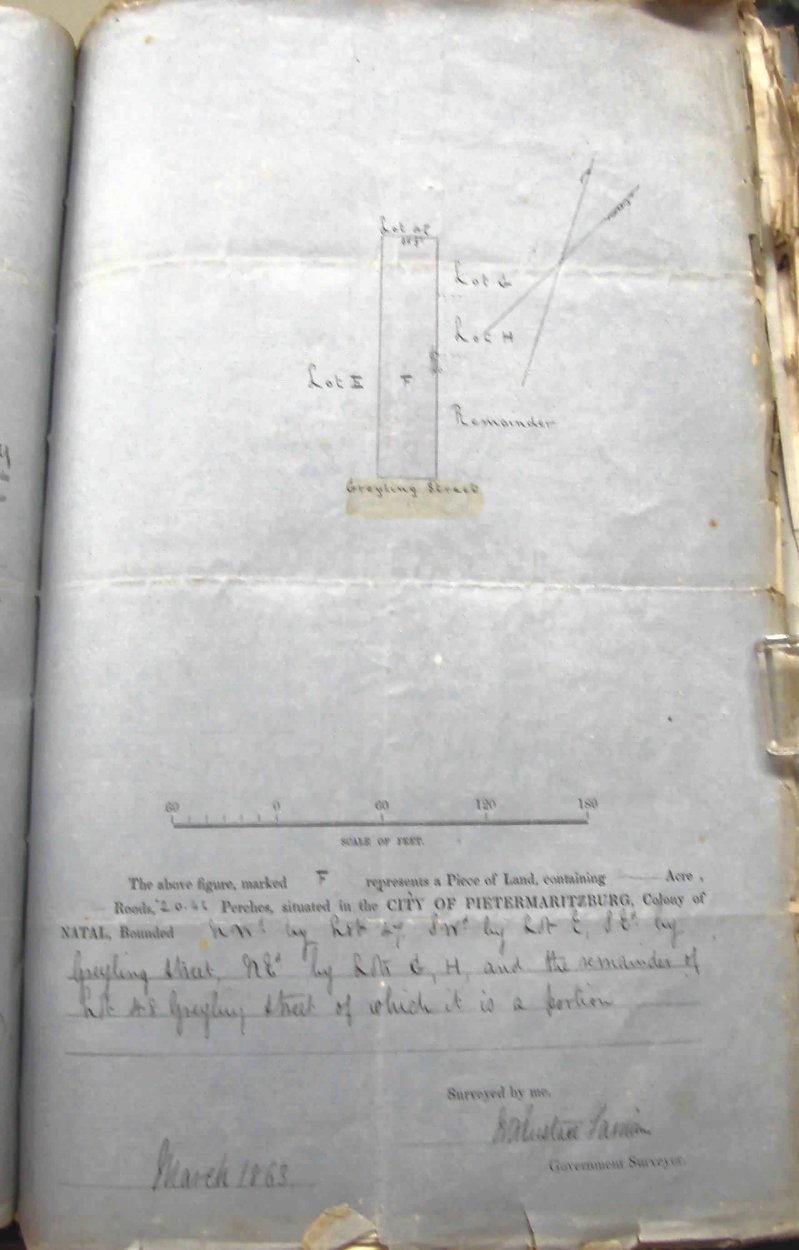 Lot 47
Lot G
Lot H
Lot E
F
Remainder
Greyling Street
60 0 60 120 180
SCALE OF FEET.
The above figure, marked F represents a Piece of Land, containing Acre,
Roods, Perches, situated in the CITY OF PIETERMARITZBURG, Colony of
NATAL, Bounded NWd by Lot 47 SWd by Lot E, SEd by
Greyling Street, NEd by Lots G, H, and the remainder of
Lot 48 Greyling Street of which it is a portion
Surveyed by me,
Government Surveyor.
March 1863